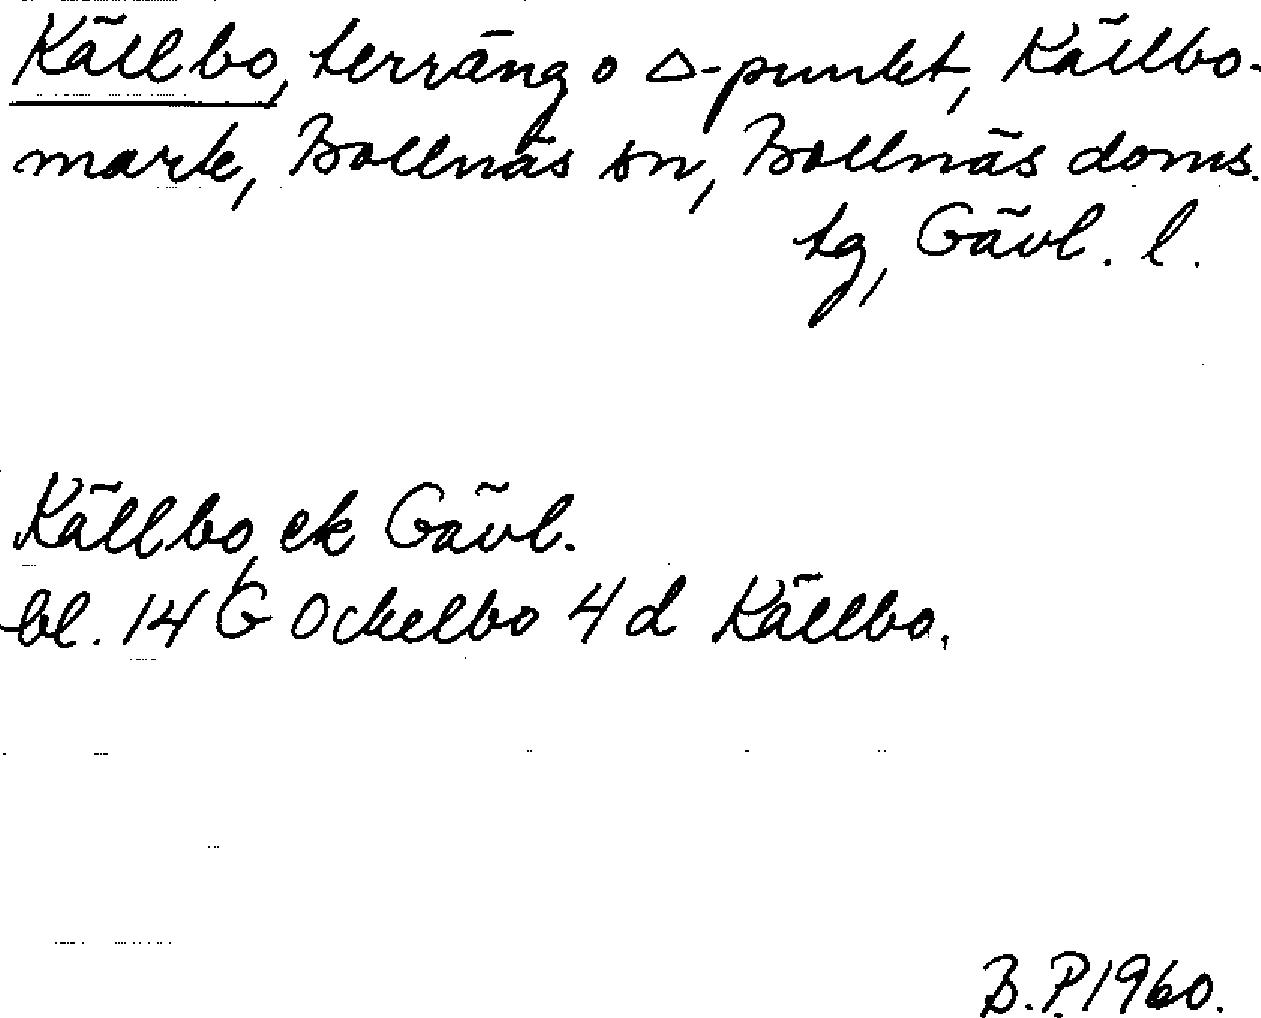 Källbo, terräng o △-punkt, Källbo-
mark, Bollnäs sn, Bollnäs doms.
tg, Gävl. l.
Källbo, ek Gävl.
bl. 14 G Ockelbo 4 d Källbo.
B.P. 1960.